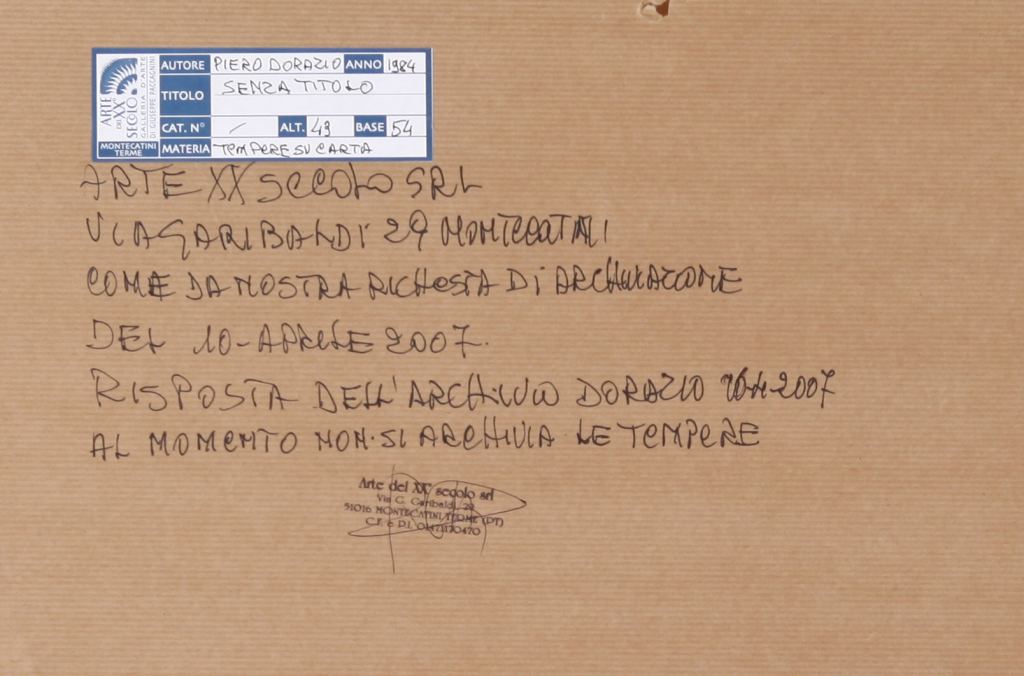 ARTE DEL XX° SECOLO
GALLERIA D'ARTE
DI GIUSEPPE PACCAGNINI
MONTECATINI TERME
AUTORE PIERO DORAZIO ANNO 1984
TITOLO SENZA TITOLO
CAT. N° / ALT. 43 BASE 54
MATERIA TEMPERE SU CARTA
ARTE XX SECOLO SRL
VIA GARIBALDI 29 MONTECATINI
COME DA NOSTRA RICHIESTA DI ARCHIVIAZIONE
DEL 10-APRILE 2007.
RISPOSTA DELL'ARCHIVIO DORAZIO 2007
AL MOMENTO NON SI ARCHIVIA LE TEMPERE
Arte del XX° secolo srl
Via G. Garibaldi, 29
51016 MONTECATINI TERME (PT)
C.F. e P.I.